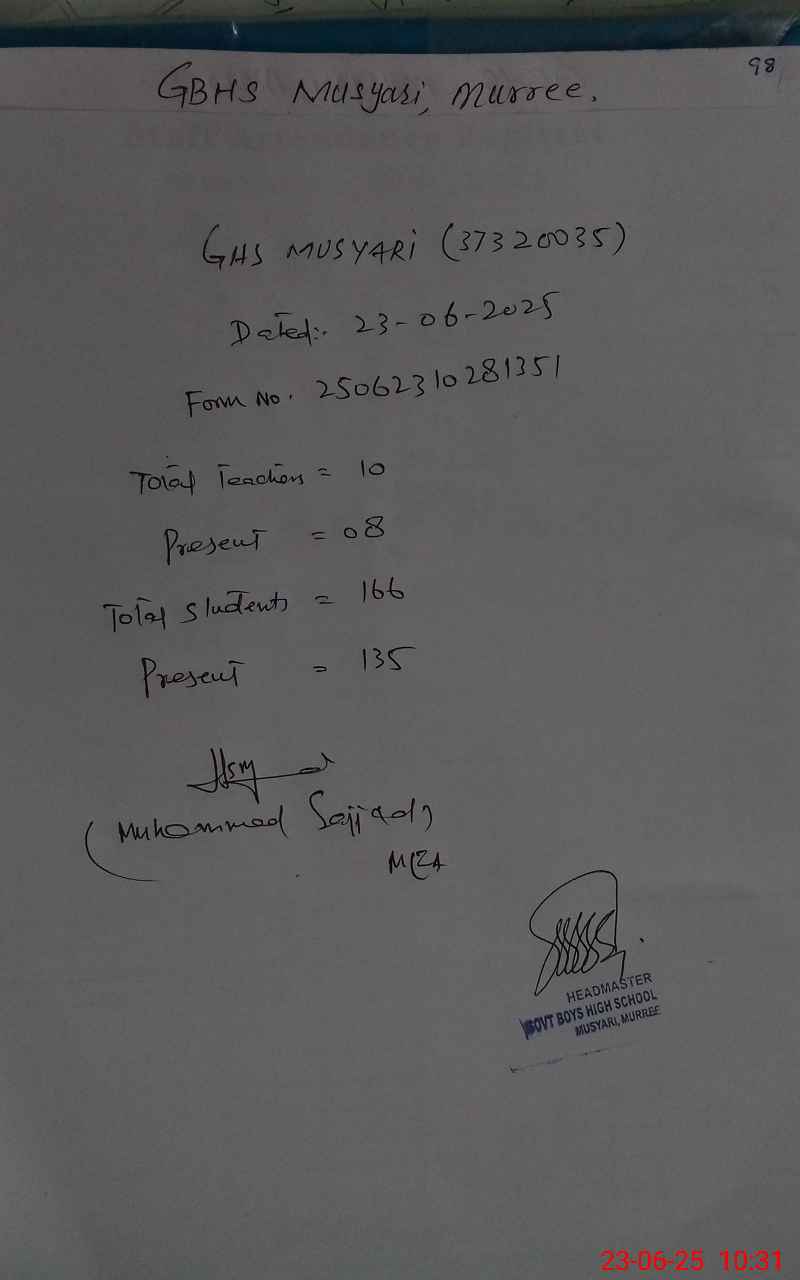 98
GBHS Musyari, Murree.
GHS MUSYARI (37320035)
Dated:. 23-06-2025
Form No. 25062310281351
Total Teachers = 10
Present = 08
Total Students = 166
Present = 135
(Muhammad Sajjad)
MEA
HEADMASTER
GOVT BOYS HIGH SCHOOL
MUSYARI, MURREE
23-06-25 10:31